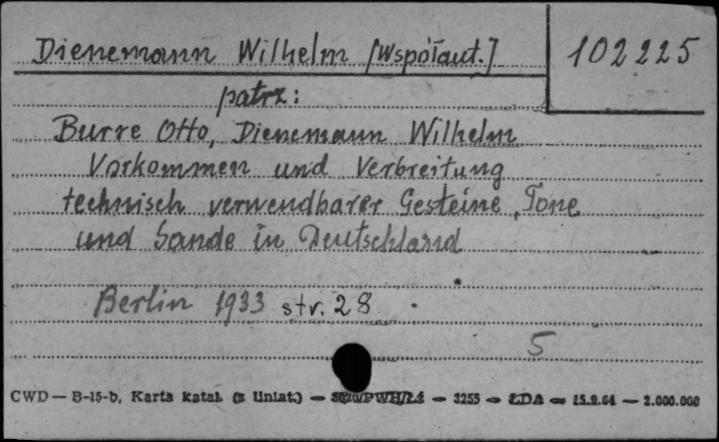 Dienemann Wilhelm [Współaut.] 102225
patrz:
Burre Otto, Dienemann Wilhelm
Vorkommen und Verbreitung
technisch verwendbarer Gesteine, Tone
und Sande in Deutschland
Berlin 1933 str. 28
5
CWD — B-15-b, Karta katal. (z liniat.) — — 3255 — ŁDA — 15.9.64 — 2.000.000